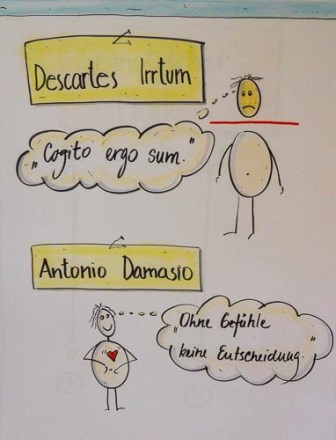 Descartes Irrtum
„Cogito ergo sum.
Antonio Damasio
„Ohne Gefühle
keine Entscheidung.